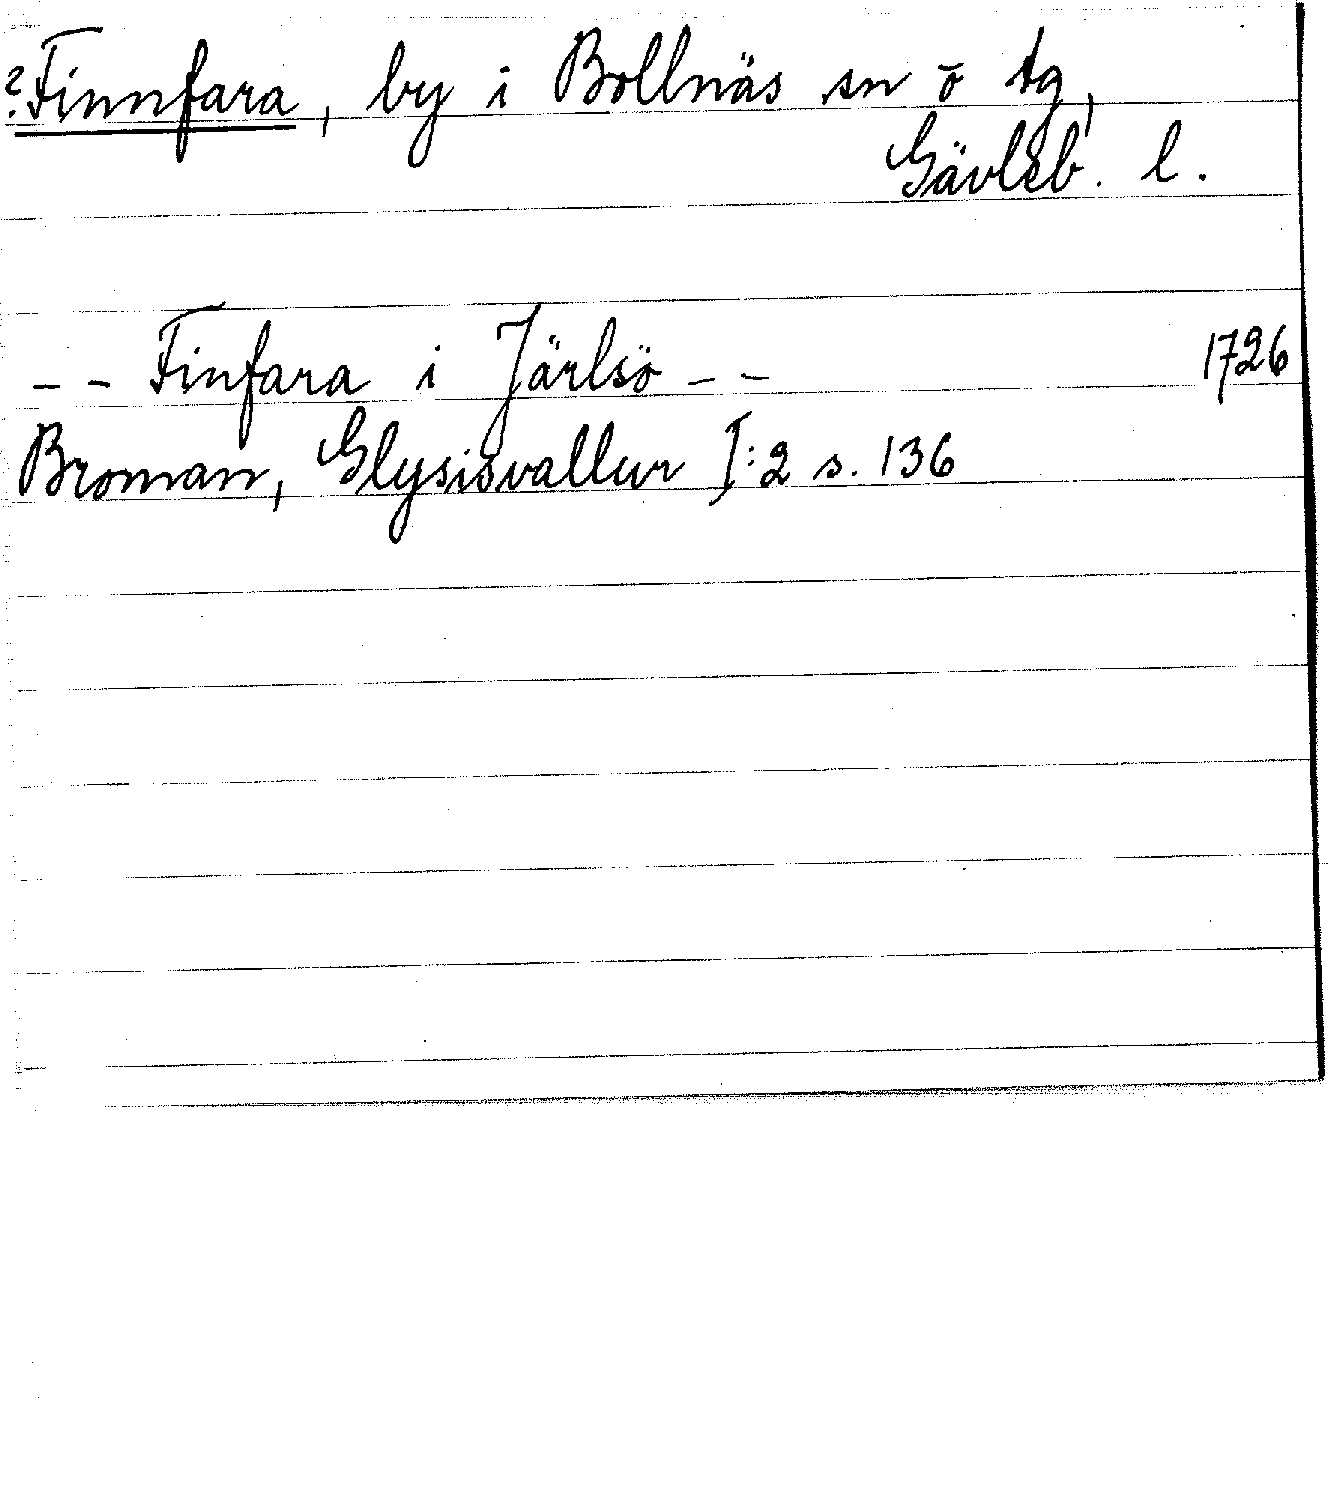 ?Finnfara, by i Bollnäs sn o tg,
Gävleb. l.
-- Finfara i Järlsö -- 1726
Broman, Glysisvallur I:2 s. 136